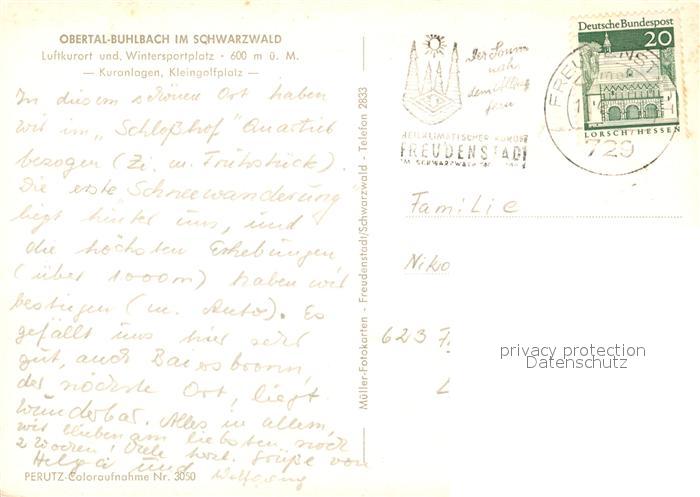 OBERTAL-BUHLBACH IM SCHWARZWALD
Luftkurort und Wintersportplatz · 600 m ü. M.
— Kuranlagen, Kleingolfplatz —
In diesem schönen Ort haben
wir im „Schloßhof" Quartier
bezogen (Zi. m. Frühstück).
Die erste Schneewanderung
liegt hinter uns, und
die höchsten Erhebungen
(über 1000m) haben wir
bestiegen (m. Auto). Es
gefällt uns hier sehr
gut, auch Baiersbronn,
der nächste Ort, liegt
wunderbar. Alles in allem,
wir blieben am liebsten noch
2 Wochen! Viele herzl. Grüße von
Helga und Wolfgang
PERUTZ-Coloraufnahme Nr. 3050
Müller-Fotokarten - Freudenstadt/Schwarzwald - Telefon 2833
Der Sonne
nah
dem Alltag
fern
HEILKLIMATISCHER KURORT
FREUDENSTADT
IM SCHWARZWALD
FREUDENST
729
Deutsche Bundespost
20
LORSCH/HESSEN
Familie
Niko
623 F
privacy protection
Datenschutz